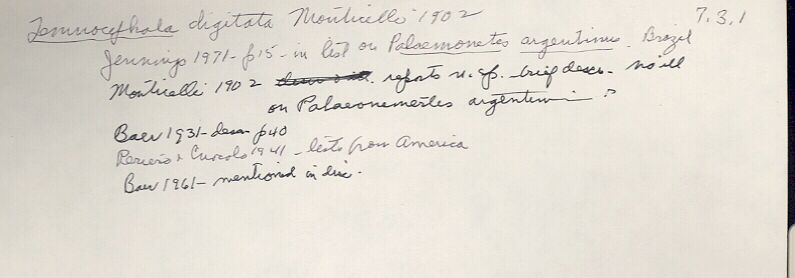 Temnocephala digitata Monticelli 1902
7.3.1
Jennings 1971 - p15 - in list on Palaemonetes argentinus. Brazil
Monticelli 1902 reports n. sp. brief desc - no ill
on Palaeonemertes argentini ?
Baer 1931 - desc p40
1941 - lists from America
Baer 1961 - mentioned in disc.